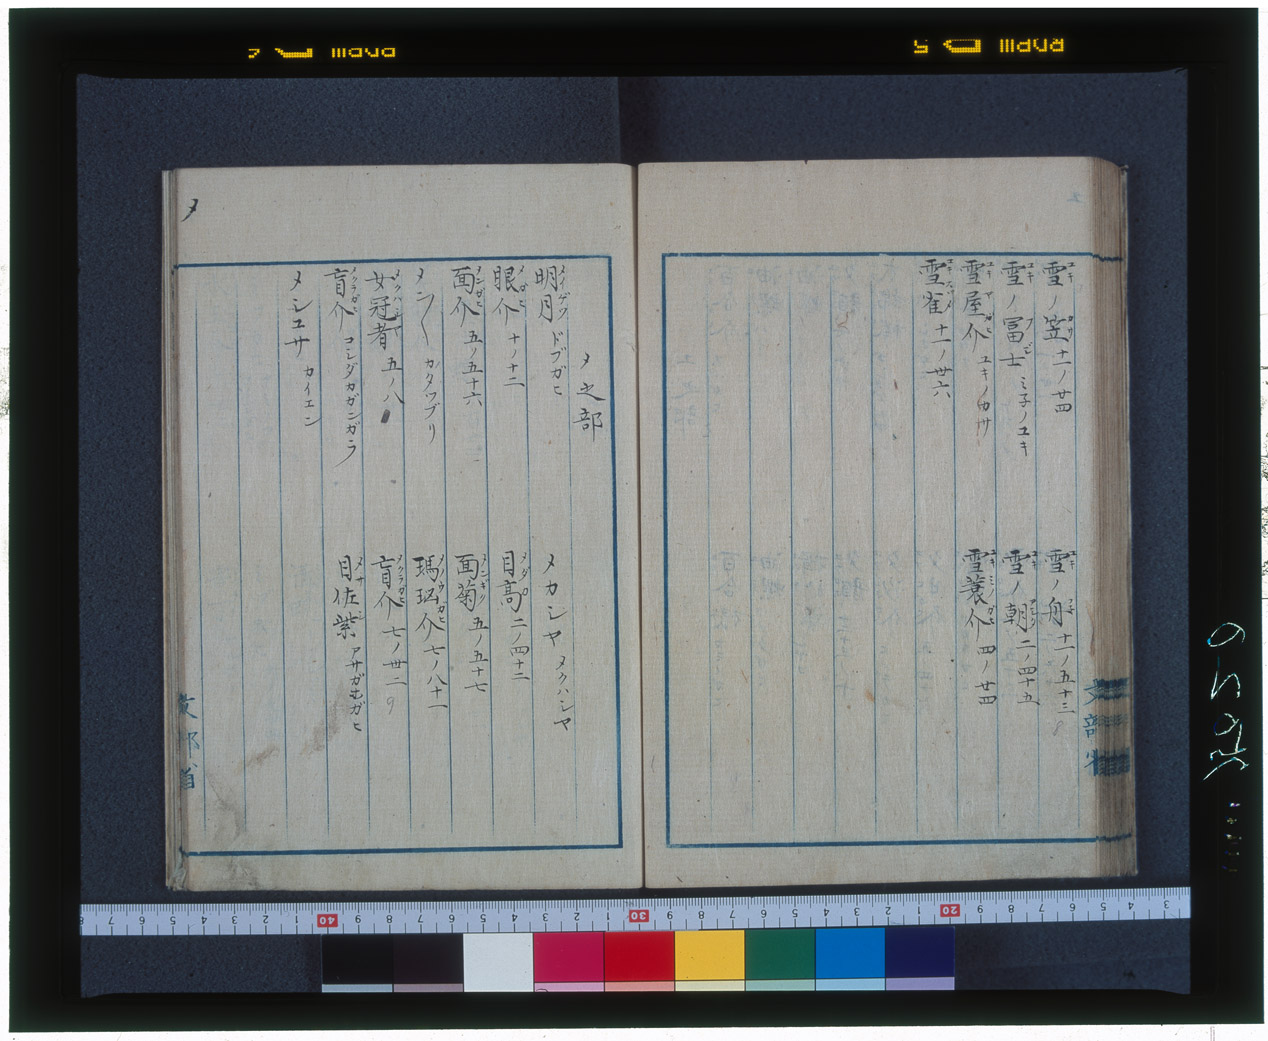 雪ノ笠 十一ノ廿四
雪ノ舟 十一ノ五十三
雪ノ冨士 ミ子ノユキ
雪ノ朝 二ノ四十五
雪屋介 ユキノカサ
雪蓑介 四ノ廿四
雪雀 十一ノ卅六
文部省
メ之部
明月 ドブガヒ
メカシヤ メクハシヤ
眼介 十ノ十二
目高 二ノ四十二
面介 五ノ五十六
面菊 五ノ五十七
メン〱 カタツブリ
瑪瑙介 七ノ八十一
女冠者 五ノ八
盲介 七ノ卅二
盲介 コシダカガンガラ
目佐紫 アサガホガヒ
メシユサ カイエン
メ
文部省